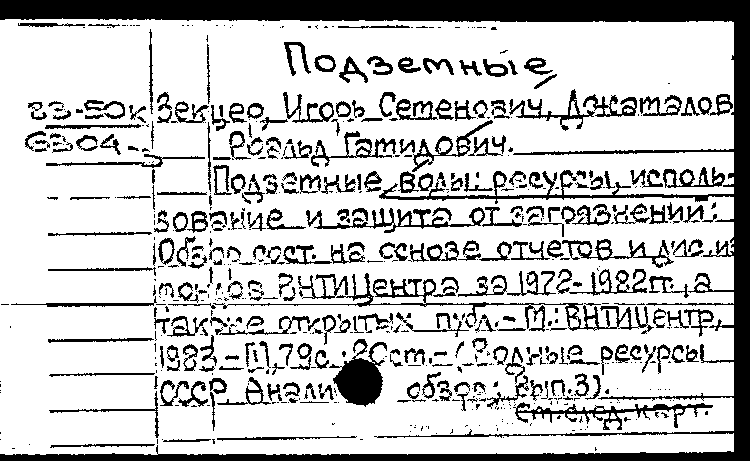 Подземные
83-50к Зекцер, Игорь Семенович, Джамалов
6304- Роальд Гамидович.
Подземные воды: ресурсы, исполь-
зование и защита от загрязнений:
Обзор сост. на основе отчетов и дис. из
фондов ВНТИЦентра за 1972-1982гг., а
также открытых публ.-М.: ВНТИЦентр,
1983.-[1], 79с.; 20см.-(Водные ресурсы
СССР. Анали обзор; Вып.3).
См.след.карт.